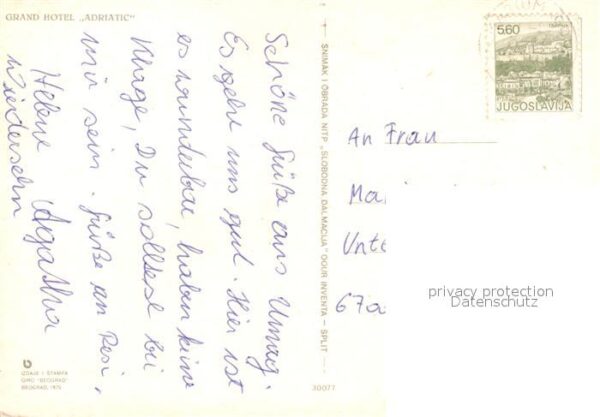 GRAND HOTEL „ADRIATIC"
Schöne Grüße aus Umag.
Es geht uns gut. Hier ist
es wunderbar, haben keine
Klage, Du solltest bei
mir sein. Grüße an Resi,
Helene Agatha
Wiedersehn
IZDAJE I ŠTAMPA
GIRO "BEOGRAD"
BEOGRAD, 1975
SNIMAK I OBRADA NITP „SLOBODNA DALMACIJA" OOUR INVENTA — SPLIT —
30077
5.60
JUGOSLAVIJA
An Frau
Ma
Unte
670
privacy protection
Datenschutz